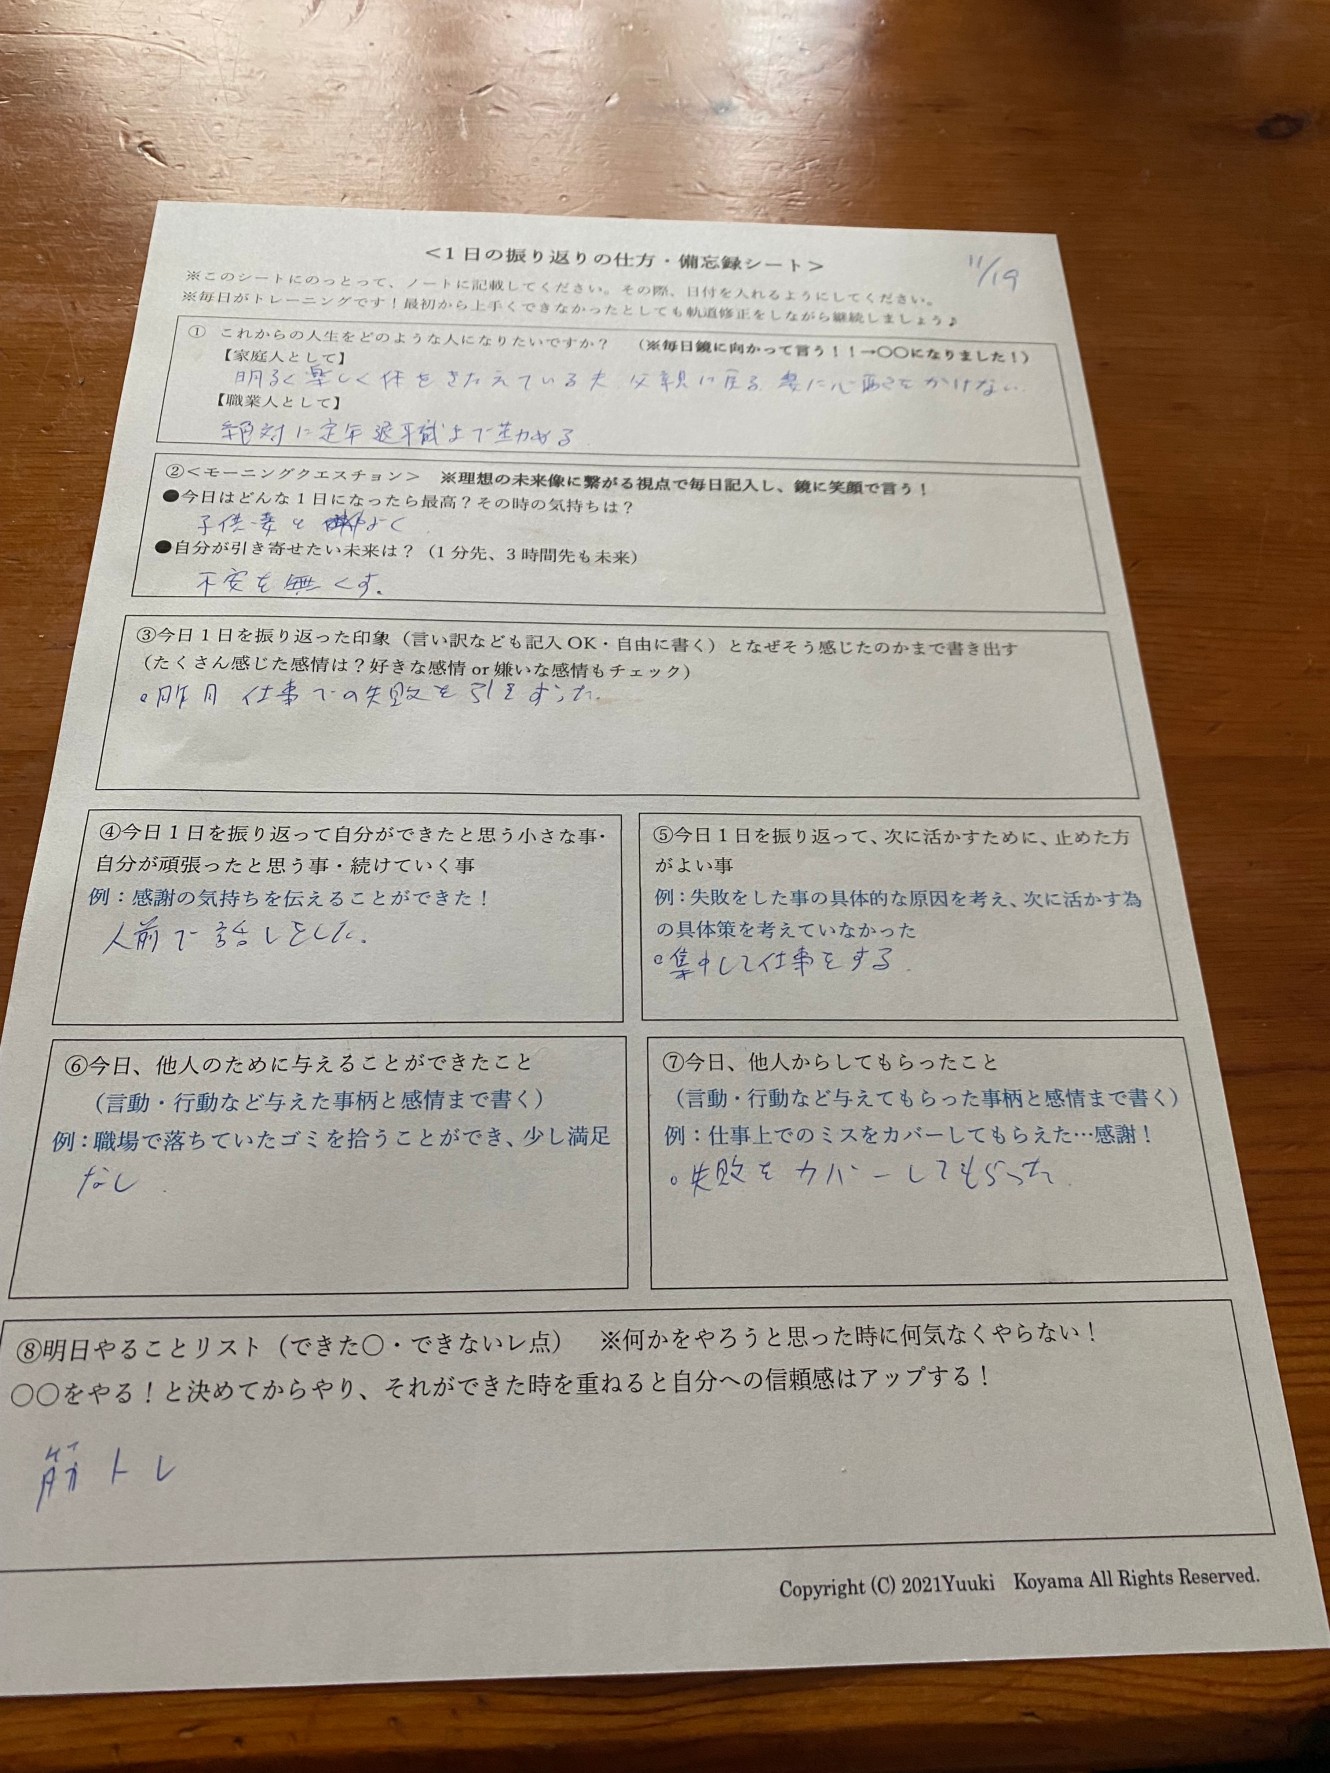 <1日の振り返りの仕方・備忘録シート>
11/19
※このシートにのっとって、ノートに記載してください。その際、日付を入れるようにしてください。
※毎日がトレーニングです！最初から上手くできなかったとしても軌道修正をしながら継続しましょう♪
① これからの人生をどのような人になりたいですか？ （※毎日鏡に向かって言う！！→〇〇になりました！）
【家庭人として】
明るく楽しく体をきたえている夫、父親に戻る 妻に心配をかけない
【職業人として】
絶対に定年退職まで勤める
②<モーニングクエスチョン> ※理想の未来像に繋がる視点で毎日記入し、鏡に笑顔で言う！
●今日はどんな1日になったら最高？その時の気持ちは？
子供・妻と 仲よく
●自分が引き寄せたい未来は？（1分先、3時間先も未来）
不安を無くす。
③今日1日を振り返った印象（言い訳なども記入OK・自由に書く）となぜそう感じたのかまで書き出す
（たくさん感じた感情は？好きな感情or嫌いな感情もチェック）
。昨日 仕事での失敗を引きずった。
④今日1日を振り返って自分ができたと思う小さな事・
自分が頑張ったと思う事・続けていく事
例：感謝の気持ちを伝えることができた！
人前で話しをした。
⑤今日1日を振り返って、次に活かすために、止めた方
がよい事
例：失敗をした事の具体的な原因を考え、次に活かす為
の具体策を考えていなかった
。集中して仕事をする。
⑥今日、他人のために与えることができたこと
（言動・行動など与えた事柄と感情まで書く）
例：職場で落ちていたゴミを拾うことができ、少し満足
なし.
⑦今日、他人からしてもらったこと
（言動・行動など与えてもらった事柄と感情まで書く）
例：仕事上でのミスをカバーしてもらえた…感謝！
。失敗をカバーしてもらった.
⑧明日やることリスト（できた〇・できないレ点） ※何かをやろうと思った時に何気なくやらない！
〇〇をやる！と決めてからやり、それができた時を重ねると自分への信頼感はアップする！
筋トレ
Copyright (C) 2021Yuuki Koyama All Rights Reserved.